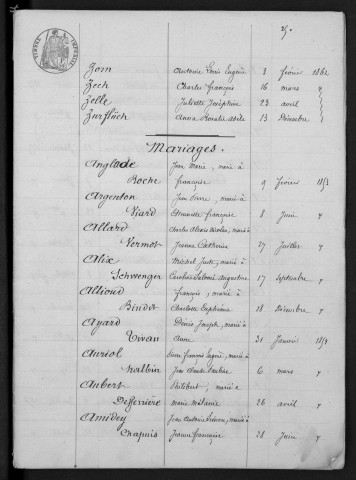 25.
TIMBRE IMPÉRIAL
Zorn Antoine Louis Eugène 3 février 1862
Zech Charles François 16 mars "
Zelle Juliette Joséphine 23 avril "
Zurfluch Anna Rosalie Adèle 13 Décembre "
Mariages.
Anglade Jean Marie, marié à
Roche françoise 9 février 1853
Argenton Jean Pierre, marié à
Viard françoise 8 Juin "
Allard Charles Alexis Nicolas, marié à
Vermot Jeanne Catherine 27 Juillet "
Alix Michel Juste, marié à
Schwenger Caroline Salomé Augustine 17 septembre "
Allioud françois, marié à
Bindot Charlotte Euphémie 18 Décembre "
Ayard Denis Joseph, marié à
Vivan Anne 31 Janvier 1854
Auriol Pierre François Eugène, marié à
Nalbin 6 mars "
Aubert Philibert, marié à
Deferrière marie Mélanie 26 avril "
Amidey Jean Antoine, marié à
Chapuis Jeanne françoise 28 Juin "